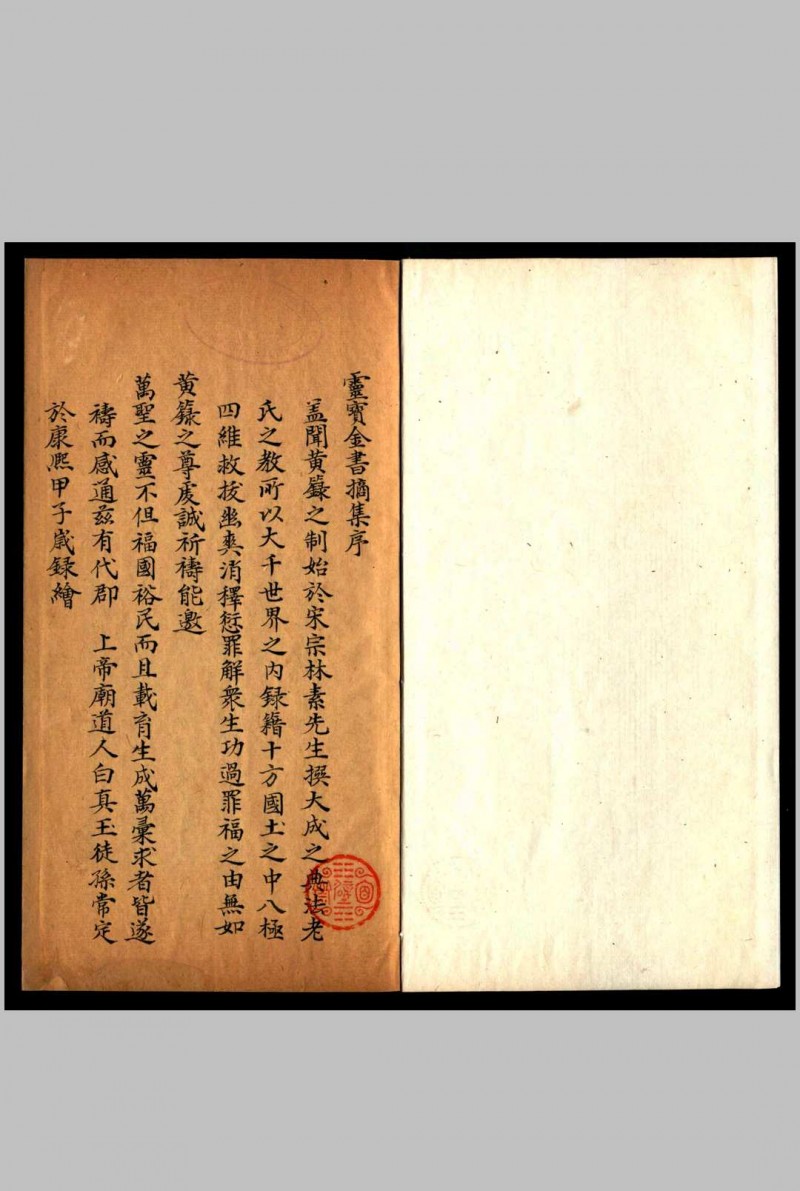 靈寶金書摘集序
盖聞黃籙之制始於宋宗林素先生撰大成之典法老
氏之教所以大千世界之内録籍十方國土之中八極
四維救拔幽爽消釋愆罪解衆生功過罪福之由無如
黃籙之尊虔誠祈禱能邀
萬聖之靈不但福國裕民而且載育生成萬彙求者皆遂
禱而感通兹有代郡 上帝廟道人白真玉徒孫常定
於康熈甲子歲録繪